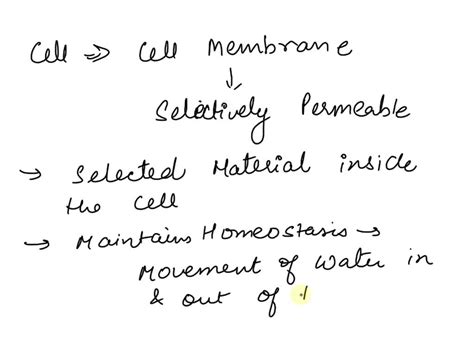 Cell ⇒ Cell Membrane
↓
Selectively Permeable
→ Selected Material inside
the cell
→ Maintains Homeostasis →
Movement of water in
& out of